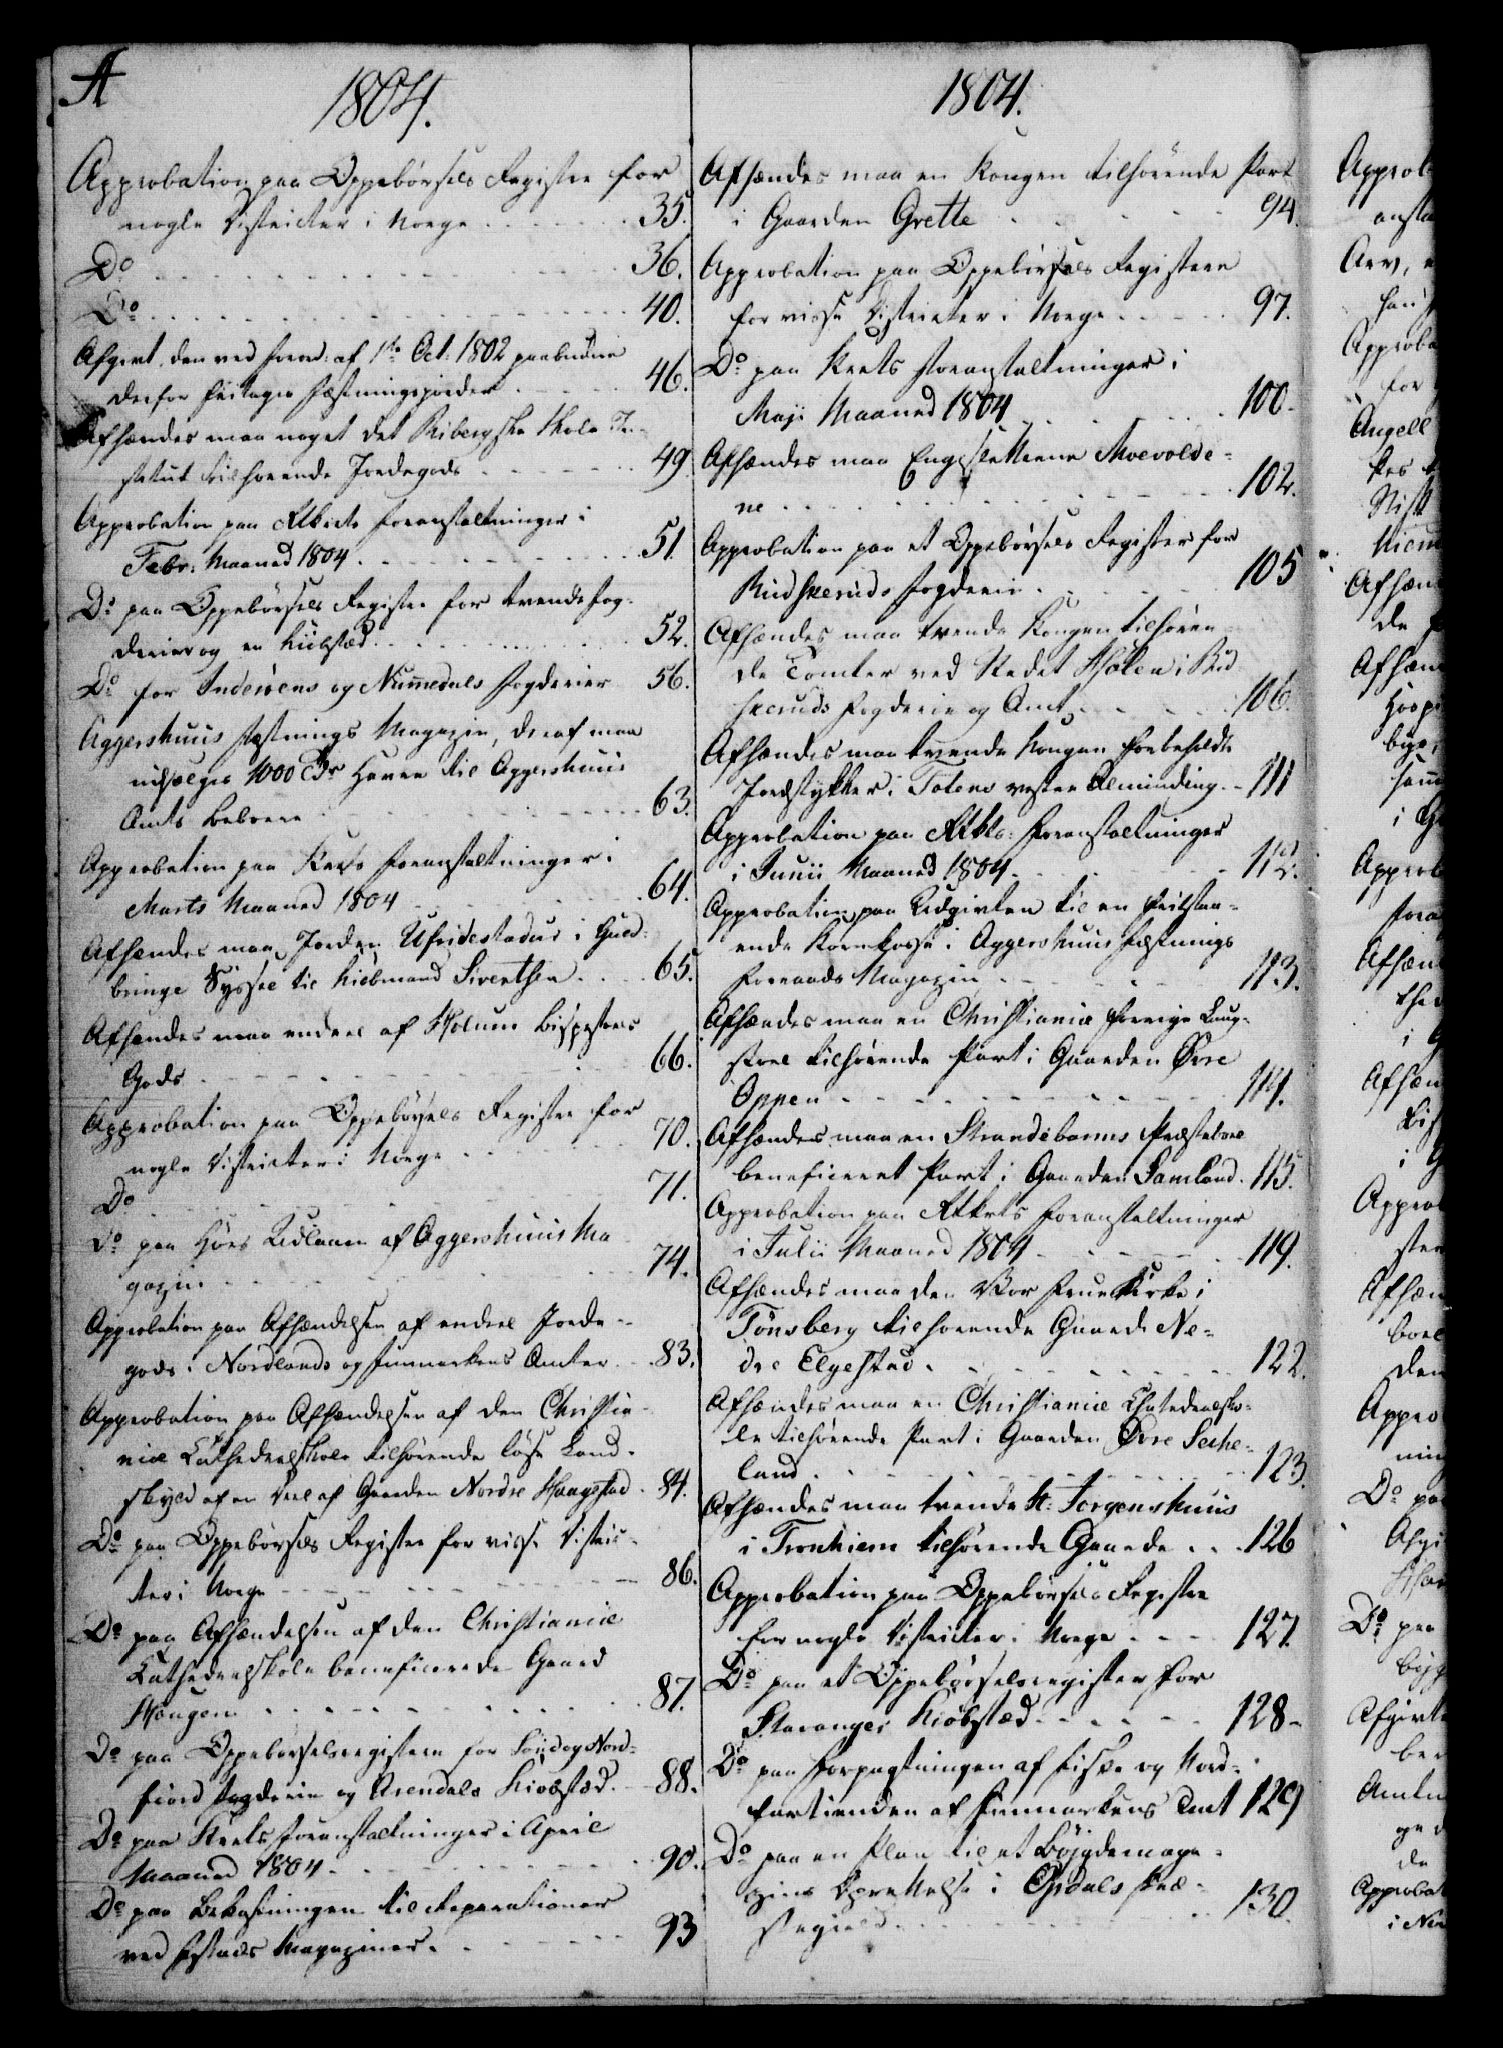 A
1804.
Approbation paa Oppebørsels Register for
nogle Districter i Norge . . . . . . 35.
Do . . . . . . . . . . 36.
Do . . . . . . . . . . 40.
Afgivt den ved Forord: af 1ste Oct: 1802 paabudne
derfor fritages Fæstningsjorder . . . . 46.
Afhændes maa noget det Ribergske Skole In-
stitut tilhørende Jordegods . . . . . 49.
Approbation paa Rtkrts Foranstaltninger i
Febr: Maaned 1804 . . . . . . . 51.
Do paa Oppebørsels Register for tvende Fog-
derier og en Kiøbstæd . . . . . . . 52.
Do for Inderøens og Nummedals Fogderier 56.
Aggershuus Fæstnings Magazin, deraf maa
udsælges 1000 Tdr Havre til Aggershuus
Amts Beboere . . . . . . . . 63.
Approbation paa Rtkrts Foranstaltninger i
Marts Maaned 1804 . . . . . . 64.
Afhændes maa Jorden Ufridestadur i Guld-
bringe Syssel til Kiøbmand Sivertsen . . . 65.
Afhændes maa endeel af Holums Bispestoels
Gods . . . . . . . . . . 66.
Approbation paa Oppebørsels Register for
nogle Districter i Norge . . . . . 70.
Do . . . . . . . . . . 71.
Do paa Høes Udlaan af Aggershuus Ma-
gazin . . . . . . . . . . 74.
Approbation paa Afhændelsen af endeel Jorde-
gods i Nordlands og Finmarkens Amter . . 83.
Approbation paa Afhændelsen af den Christia-
niæ Cathedralskole tilhørende løse Land-
skyld af en Deel af Gaarden Nordre Haugstad . 84.
Do paa Oppebørsels Register for visse Distric-
ter i Norge . . . . . . . . 86.
Do paa Afhændelsen af den Christianiæ
Cathedralskole beneficerede Gaard
Haugen . . . . . . . . . 87.
Do paa Oppebørselsregistere for Sønd og Nord-
fiord Fogderie og Arendals Kiøbstæd . . 88.
Do paa Rtkrts Foranstaltninger i April
Maaned 1804 . . . . . . . . 90.
Do paa Bekostningen til Reparationer
ved Magaziner . . . . . . 93
1804.
Afhændes maa en Kongen tilhørende Part
i Gaarden Grette . . . . . 94.
Approbation paa Oppebørsels Registere
for visse Districter i Norge . . . . . 97.
Do paa Rtkrts Foranstaltninger i
Maji Maaned 1804 . . . . . 100.
Afhændes maa Engesletterne Moevolde-
ne . . . . . . . . . 102.
Approbation paa et Oppebørsels Register for
Budskeruds Fogderie . . . . . 105
Afhændes maa tvende Kongen tilhøren-
de Tomter ved Stedet Holen i Bud-
skeruds Fogderie og Amt . . . . . 106.
Afhændes maa tvende Kongen forbeholdte
Jordstykker i Totens vestre Alminding . . 111
Approbation paa Rtkts: Foranstaltninger
i Junii Maaned 1804 . . . . . . 112.
Approbation paa Udgivten til en fritstaa-
ende Kornkasse i Aggershuus Fæstnings
Forraads Magazin . . . . . 113.
Afhændes maa en Christianiæ forrige Laug-
stoel tilhørende Part i Gaarden Øvre
Oppen . . . . . . . . 114.
Afhændes maa en Strandebarms Præsteboel
beneficeret Part i Gaarden Samland . 115.
Approbation paa Rtkrts Foranstaltninger
i Julii Maaned 1804 . . . . . 119.
Afhændes maa den Vor Frue Kirke i
Tønsberg tilhørende Gaard Ne-
dre Elgestad . . . . . . . 122.
Afhændes maa en Christianiæ Chatedralsko-
le tilhørende Part i Gaarden Øvre Seche-
land . . . . . . . . 123.
Afhændes maa tvende St: Jørgenshuus
i Tronhiem tilhørende Gaarde . . . 126
Approbation paa Oppebørsels Registre
for nogle Districter i Norge . . . . 127.
Do paa et Oppebørselsregister for
Stavanger Kiøbstæd . . . . . . 128.
Do paa Forpagtningen af Fiske og Kord-
fartienden af Finmarkens Amt 129
Do paa en Plan til et Bøjgdemaga-
zins Oprettelse i Opdals Præ-
stegield . . . . . . . 130.